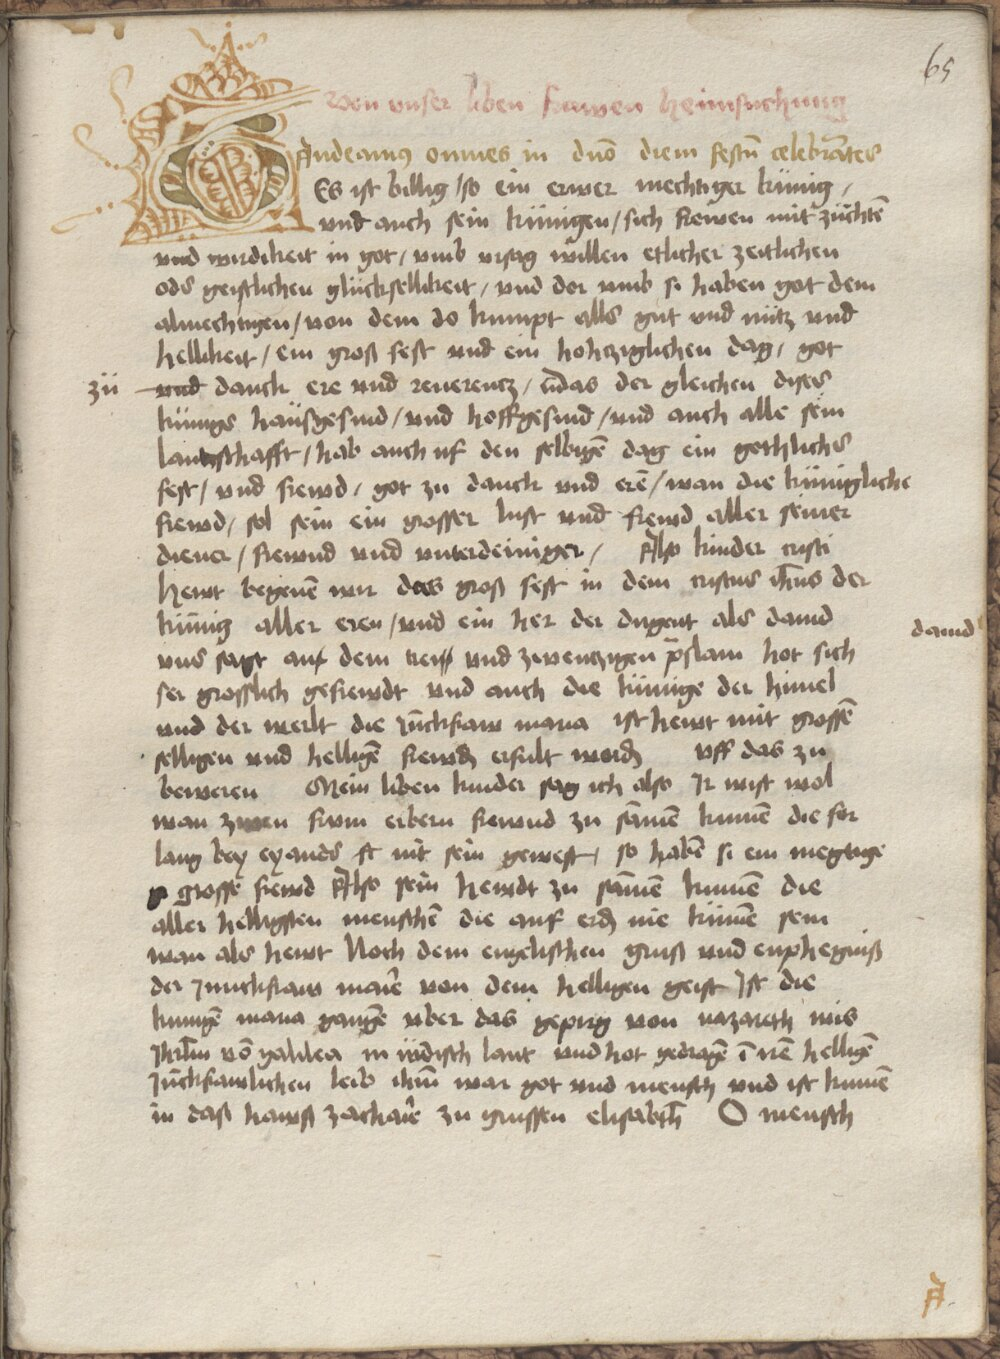 65
Von unser liben frawen heimsuchung
GAudeamus omnes in dnō diem festū celebrātes
Es ist billig / so ein erwer mechtiger künig /
vnd auch sein künigen / sich frewen mit züchtē
vnd wirdikeit in got / vmb vrsag willen etlicher zeitlichen
ods geistlichen glücksellikeit / vnd dor vmb si haben got dem
almechtigen / von dem do kumpt alls gut vnd nütz vnd
hellikeit / ein groß fest vnd ein hochziglichen dag / got
zü vnd danck ere vnd reuerentz / das der gleichen dises
künigs haüsgesind / vnd hoffgesind / vnd auch alle sein
lantschafft / hab auch uf den selbigē dag ein gothlichs
fest / vnd frewd / got zu danck vnd erē / wan die künigliche
frewd / sol sein ein grosser lust vnd frewd aller seiner
diener / frewnd vnd vnterdeiniger / Also kinder cristi
hewt begenē wir das groß fest in dem cristus ihūs der
künig aller eren / vnd ein her der dugent als dauid
dauid
vns sagt auf dem vnd zwentzigen pslam hot sich
ser grosslich gefrewdt vnd auch die künige der himel
vnd der werlt die Jūckfraw maria ist hewt mit grossē
selligen vnd helligē frewdē erfult wordē vff das zu
beweren Mein liben kinder sag ich also Ir wist wol
wan zwen frum erbern frewnd zu sāmē kumē die for
lang bey eyands st nit sein gewest / so habē si ein megtige
grosse frewd Also sein hewdt zu sāmē kumē die
aller helligsten menschē die auf erdē nie kümē sein
wan als hewt Noch dem engelischen gruß vnd enphegniß
der Junckfraw marīe von dem helligen geist Ist die
kunigē maria gangē vber das gepirg von nazareth wis
Jhrlm vō galilea in iüdisch lant vnd hot gedragē ī irē helligē
Jūckfrawlichen leib ihm war got vnd mensch vnd ist kumē
in daß hawß zacharie zu grussen elisabeth O mensch
A